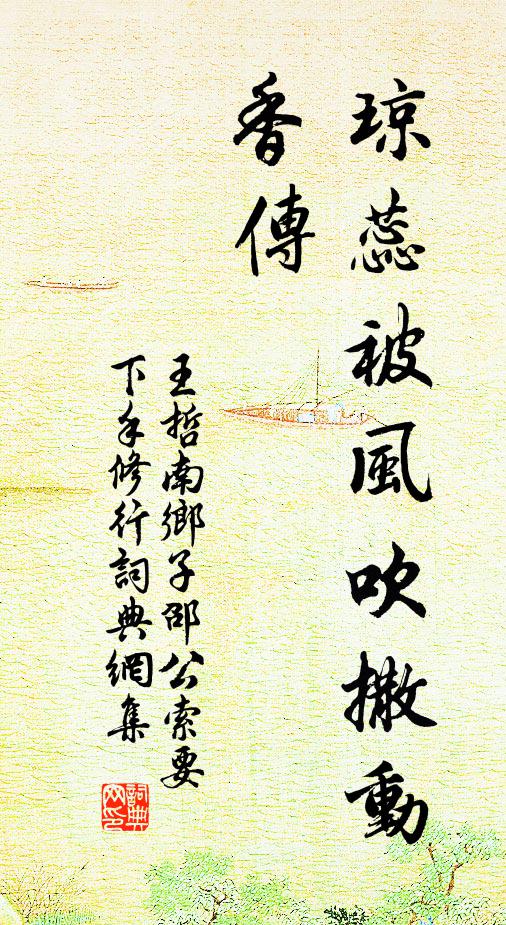 琼蕊被風吹撒動
香傳
王哲南鄉子邵公索要
下手修行詞典網集
詞典网印